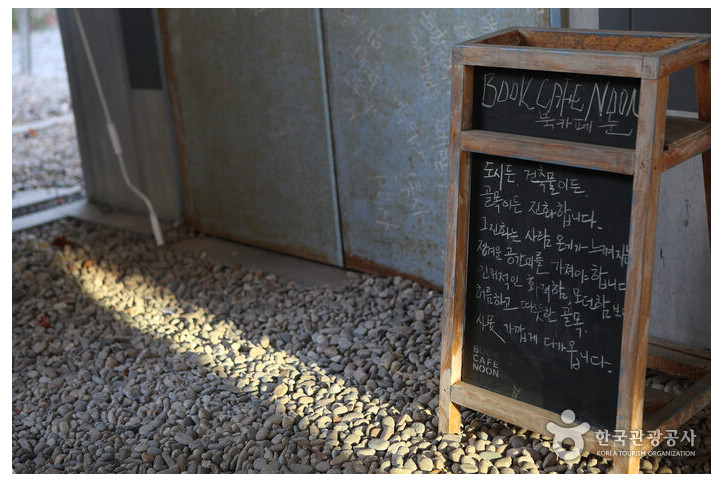 BOOK CAFE NOON
북카페 눈
도시든 건축물이든
골목이든 진화합니다.
그 진화는 사람 온기가 느껴지는
정겨운 공간미를 가져야 합니다
인위적인 화려함 모던함 보다
허름하고 따뜻한 골목,
사뭇 가깝게 다가옵니다.
BOOK
CAFE
NOON
한국관광공사
KOREA TOURISM ORGANIZATION